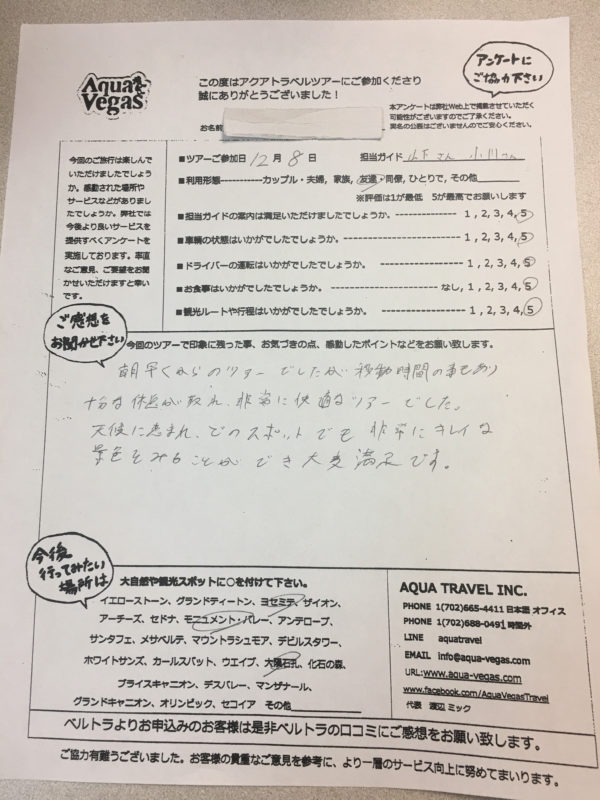 Aqua
Vegas
この度はアクアトラベルツアーにご参加くださり
誠にありがとうございました！
アンケートに
ご協力下さい
本アンケートは弊社Web上で掲載させていただく
可能性がございますのでご了承ください。
実名の公表はございませんのでご安心ください。
お名前
今回のご旅行は楽しんで
いただけましたでしょう
か。感動された場所や
サービスなどがありまし
たでしょうか。弊社では
今後より良いサービスを
提供すべくアンケートを
実施しております。率直
なご意見、ご要望をお聞
かせいただけますと幸い
です。
■ツアーご参加日 12 月 8 日 担当ガイド 山下さん 小川さん
■利用形態-----------カップル・夫婦, 家族, 友達・同僚, ひとりで, その他
※評価は1が最低 5が最高でお願いします
■担当ガイドの案内は満足いただけましたでしょうか。---------------- 1, 2, 3, 4, 5
■車輌の状態はいかがでしたでしょうか。---------------- 1, 2, 3, 4, 5
■ドライバーの運転はいかがでしたでしょうか。---------------- 1, 2, 3, 4, 5
■お食事はいかがでしたでしょうか。---------------- なし, 1, 2, 3, 4, 5
■観光ルートや行程はいかがでしたでしょうか。---------------- 1, 2, 3, 4, 5
ご感想を
お聞かせ下さい
今回のツアーで印象に残った事、お気づきの点、感動したポイントなどをお願い致します。
朝早くからのツアーでしたが移動時間の車もあり
十分な休息が取れ、非常に快適なツアーでした。
天候に恵まれ、どのスポットでも非常にキレイな
景色をみることができ大変満足です。
今後
行ってみたい
場所は
大自然や観光スポットに○を付けて下さい。
イエローストーン、グランドティートン、ヨセミテ、ザイオン、
アーチーズ、セドナ、モニュメント・バレー、アンテロープ、
サンタフェ、メサベルテ、マウントラシュモア、デビルスタワー、
ホワイトサンズ、カールスバット、ウエイブ、大隕石孔、化石の森、
ブライスキャニオン、デスバレー、マンザナール、
グランドキャニオン、オリンピック、セコイア その他
AQUA TRAVEL INC.
PHONE 1(702)665-4411 日本語 オフィス
PHONE 1(702)688-0491 時間外
LINE aquatravel
EMAIL info@aqua-vegas.com
URL:www.aqua-vegas.com
www.facebook.com/AquaVegasTravel
代表 渡辺 ミック
ベルトラよりお申込みのお客様は是非ベルトラの口コミにご感想をお願い致します。
ご協力有難うございました。お客様の貴重なご意見を参考に、より一層のサービス向上に努めてまいります。